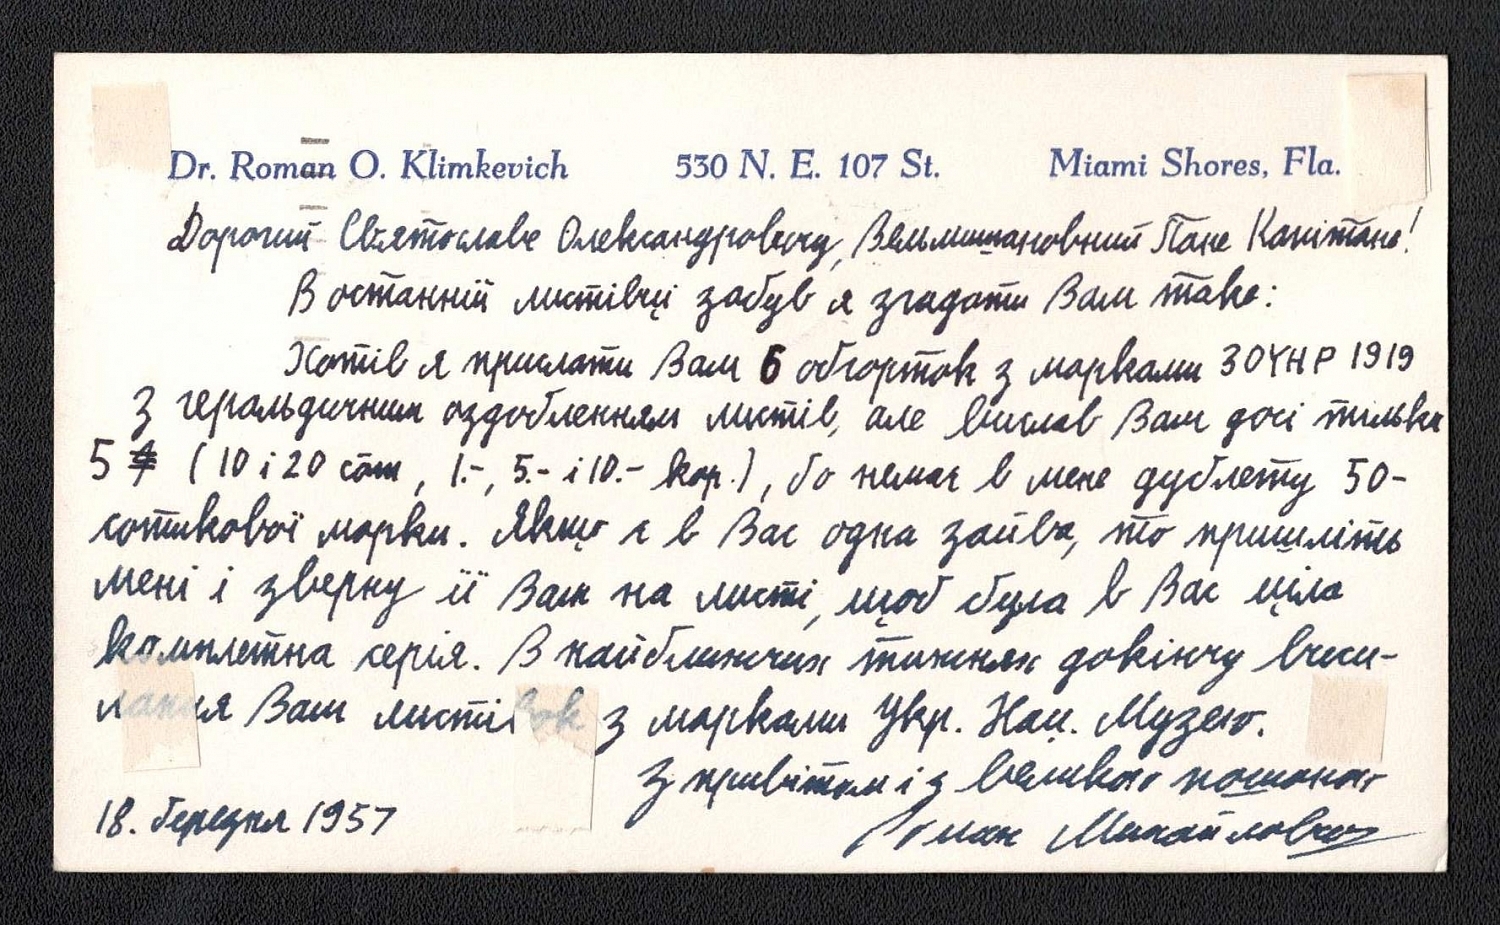 Dr. Roman O. Klimkevich 530 N. E. 107 St. Miami Shores, Fla.
Дорогий Святославе Олександровичу, Вельмишановний Пане Капітане!
В останній листівці забув я згадати Вам таке:
Хотів я прислати Вам 6 обгорток з марками ЗОУНР 1919
з геральдичним оздобленням листів, але вислав Вам досі тільки
5 (10 і 20 сот, 1.-, 5.- і 10.- кор.), бо немає в мене дублету 50-
сотикової марки. Якщо є в Вас одна зайва, то пришліть
мені і зверну її Вам на листі, щоб була в Вас ціла
комплетна серія. В найближчих тижнях докінчу виси-
лання Вам листівок з марками Укр. Нац. Музею.
З привітом і з великою пошаною
18. березня 1957 Роман Михайлович